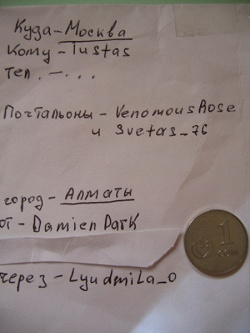 Куда-Москва
Кому-Tustas
Тел.-...
Почтальоны-VenomousRose
и Svetas_76
город-Алматы
от-DamienDark
через-Lyudmila_o
1